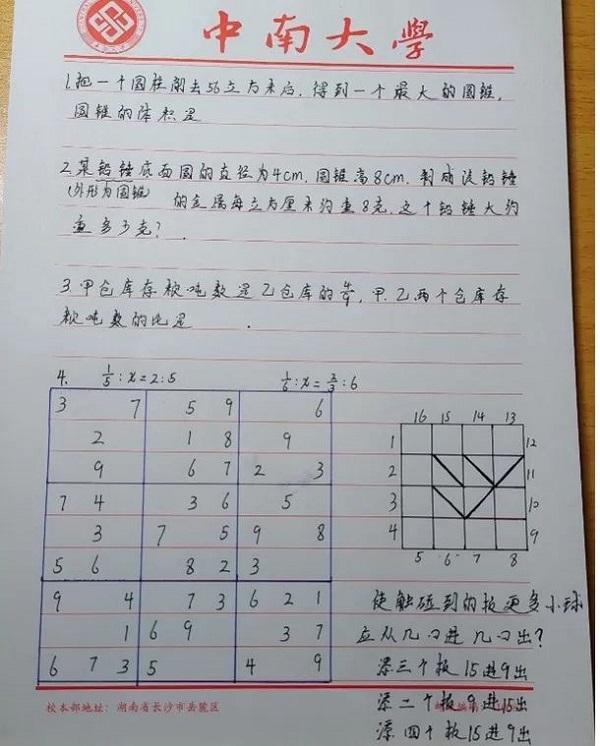 中南大学
1.把一个圆柱削去56立方米后,得到一个最大的圆锥,
圆锥的体积是
2.某铅锤底面圆的直径为4cm,圆锥高8cm.制成该铅锤
(外形为圆锥) 的金属每立方厘米约重8克,这个铅锤大约
重多少克?
3.甲仓库存粮吨数是乙仓库的 ,甲、乙两个仓库存
粮吨数的比是 .
4. 1/5:x=2:5 1/6:x=2/3:6
3 7 5 9 6
2 1 8 9
9 6 7 2 3
7 4 3 6 5
3 7 5 9 8
5 6 8 2 3
9 4 7 3 6 2 1
1 6 9 3 7
6 7 3 5 4 9
16 15 14 13
1 12
2 11
3 10
4 9
5 6 7 8
使触碰到的板更多小球
应从几口进几口出?
添三个板15进9出
添二个板9进15出
添四个板15进9出
校本部地址:湖南省长沙市岳麓区